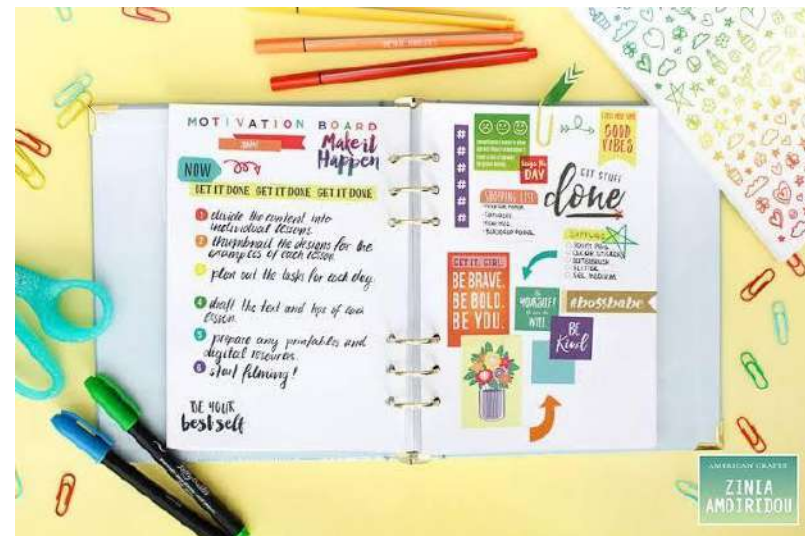 MOTIVATION BOARD
Make it
Happen
NOW
GET IT DONE GET IT DONE GET IT DONE
1 divide the content into
individual lessons.
2 thumbnail the designs for the
examples of each lesson.
3 plan out the tasks for each day.
4 draft the text and tips of each
lesson.
5 prepare any printables and
digital resources.
6 start filming!
BE YOUR
best self
#
#
#
#
#
#
seize the
DAY
GOOD
VIBES
GET STUFF
done
SHOPPING LIST
SUPPLIES
GET IT, GIRL.
BE BRAVE.
BE BOLD.
BE YOU.
YOURSELF
WILL
#bossbabe
BE
Kind
AMERICAN CRAFTS
ZINIA
AMOIRIDOU